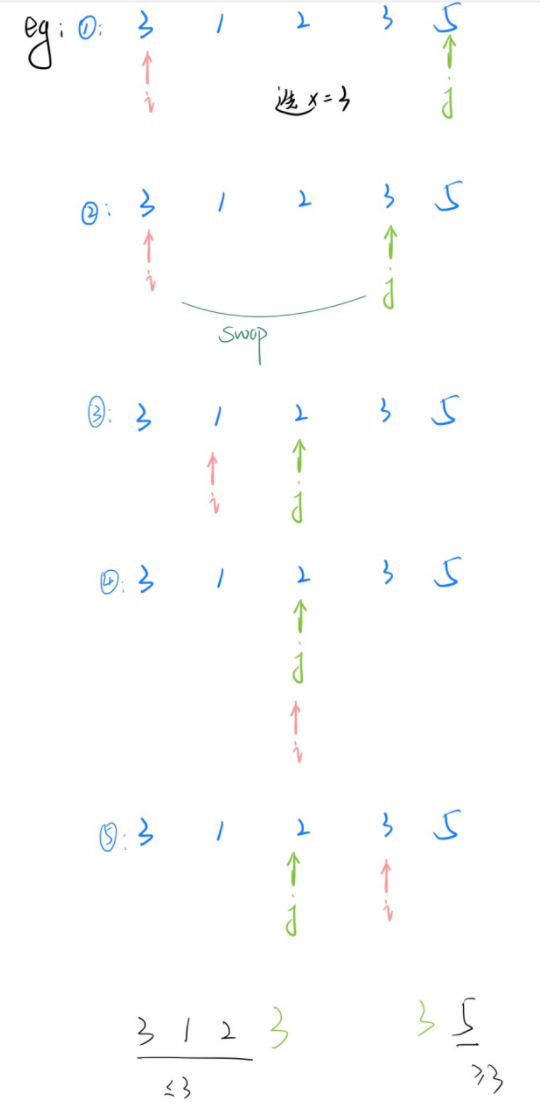 eg: ①: 3 1 2 3 5
i 选 x=3 j
②: 3 1 2 3 5
i j
swap
③: 3 1 2 3 5
i j
④: 3 1 2 3 5
j
i
⑤: 3 1 2 3 5
j i
3 1 2 3 3 5
≤3 ≥3